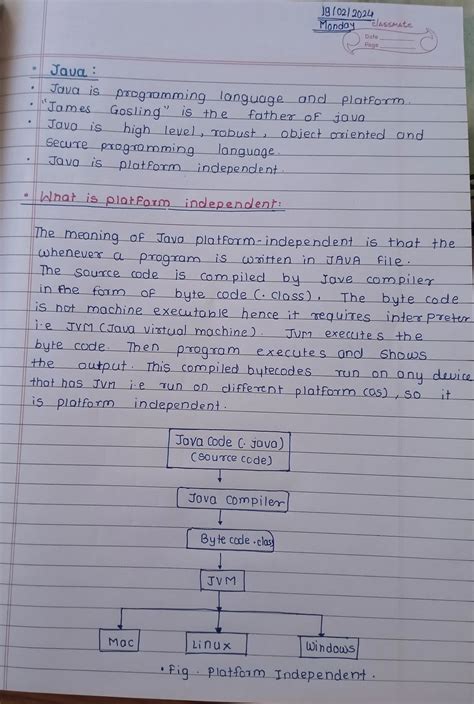 19/02/2024
Monday
classmate
Date
Page
• Java :
• Java is programming language and platform.
• "James Gosling" is the father of java
• Java is high level, robust, object oriented and
secure programming language.
• Java is platform independent.
• What is platform independent:
The meaning of Java platform-independent is that the
whenever a program is written in JAVA file.
The source code is compiled by Jave compiler
in the form of byte code (.class), The byte code
is not machine executable hence it requires interpreter
i.e JVM (Java virtual machine). JVM executes the
byte code. Then program executes and shows
the output. This compiled bytecodes run on any device
that has JVM i.e run on different platform (os), so it
is platform independent.
Java code (.java)
(source code)
Java compiler
Byte code .class
JVM
Mac Linux Windows
• Fig. Platform Independent.